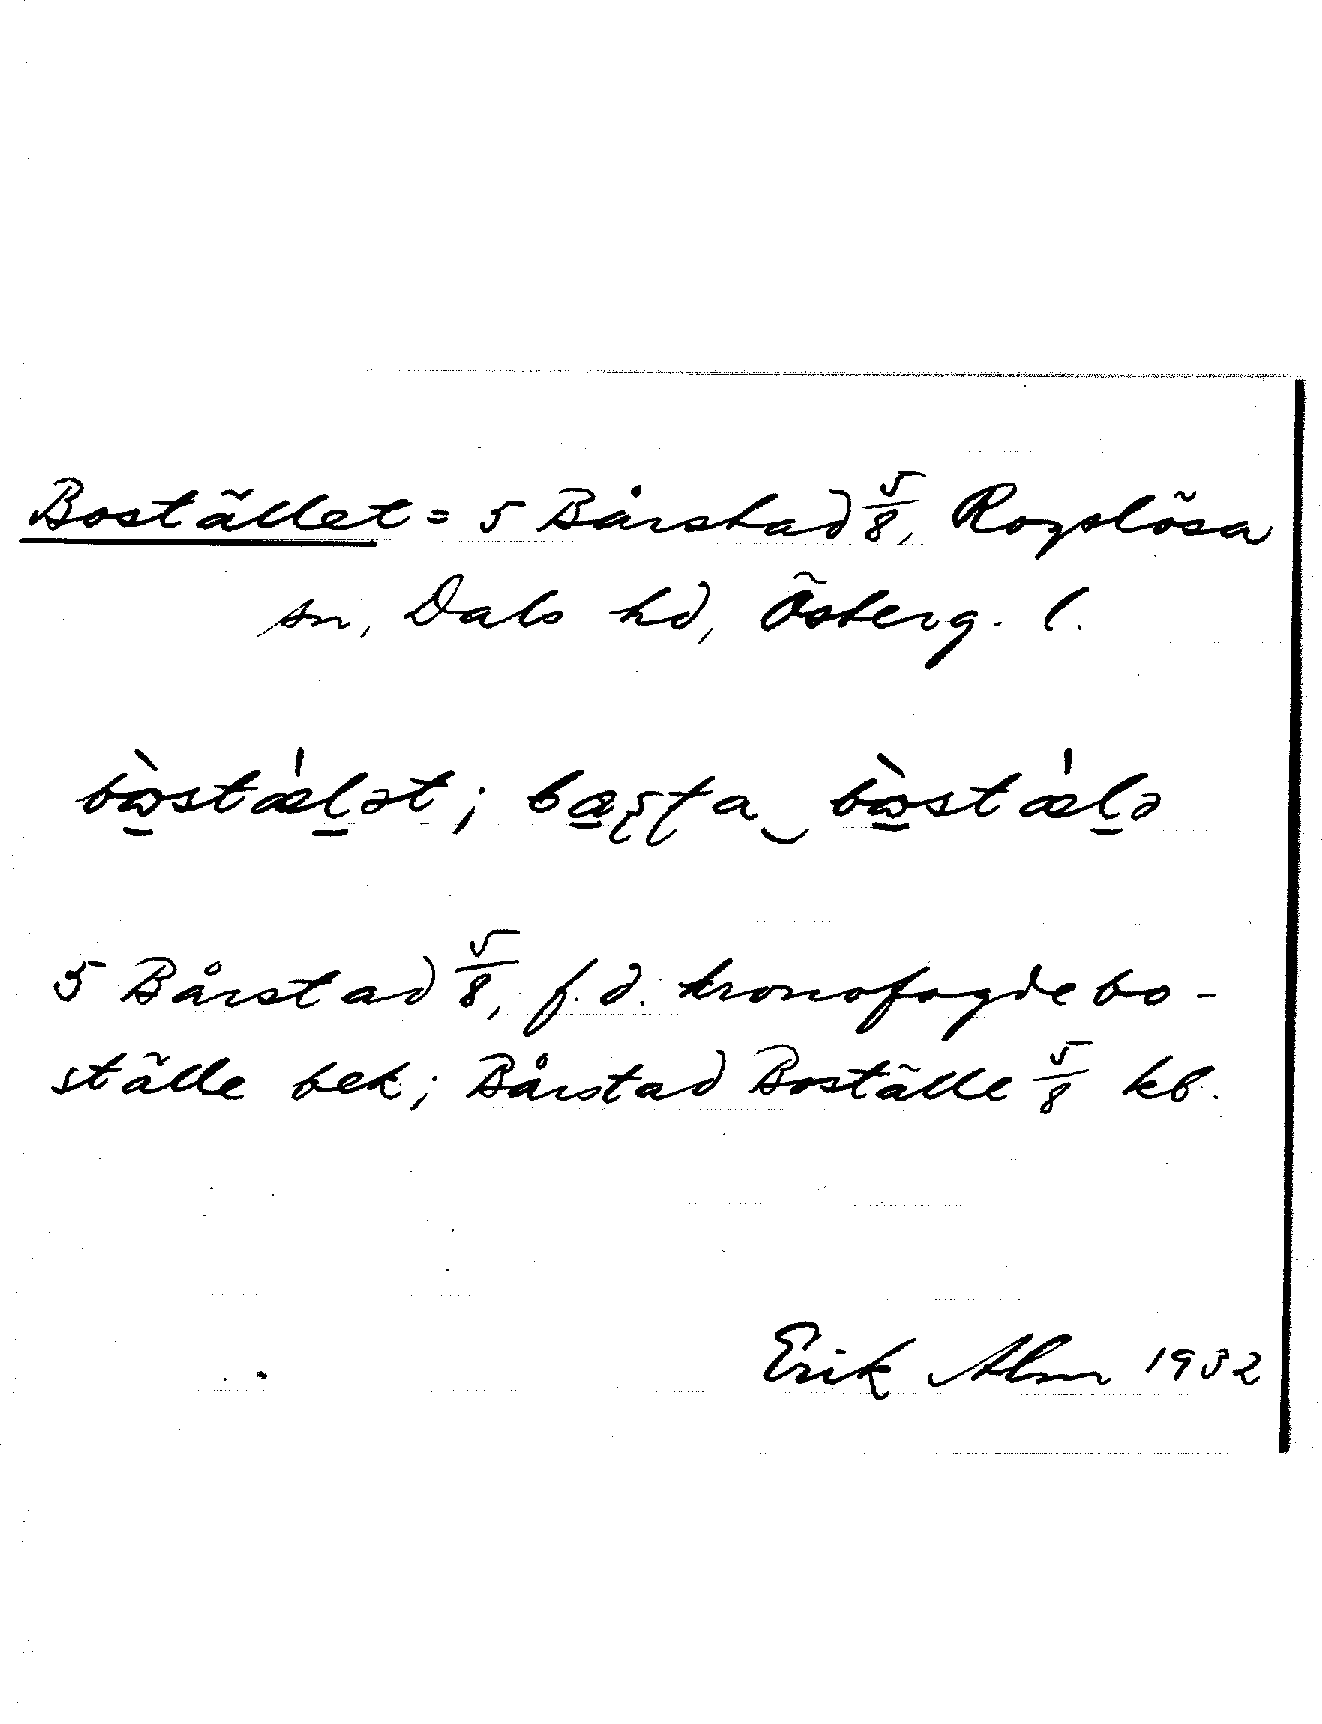 Bostället = 5 Bårstad 5/8, Rogslösa
sn, Dals hd, Österg. l.
bòstǽlət; bæʂʈa‿bòstǽlə
5 Bårstad 5/8, f.d. kronofogdebo-
ställe bek; Bårstad Boställe 5/8 kb.
Erik Alm 1932